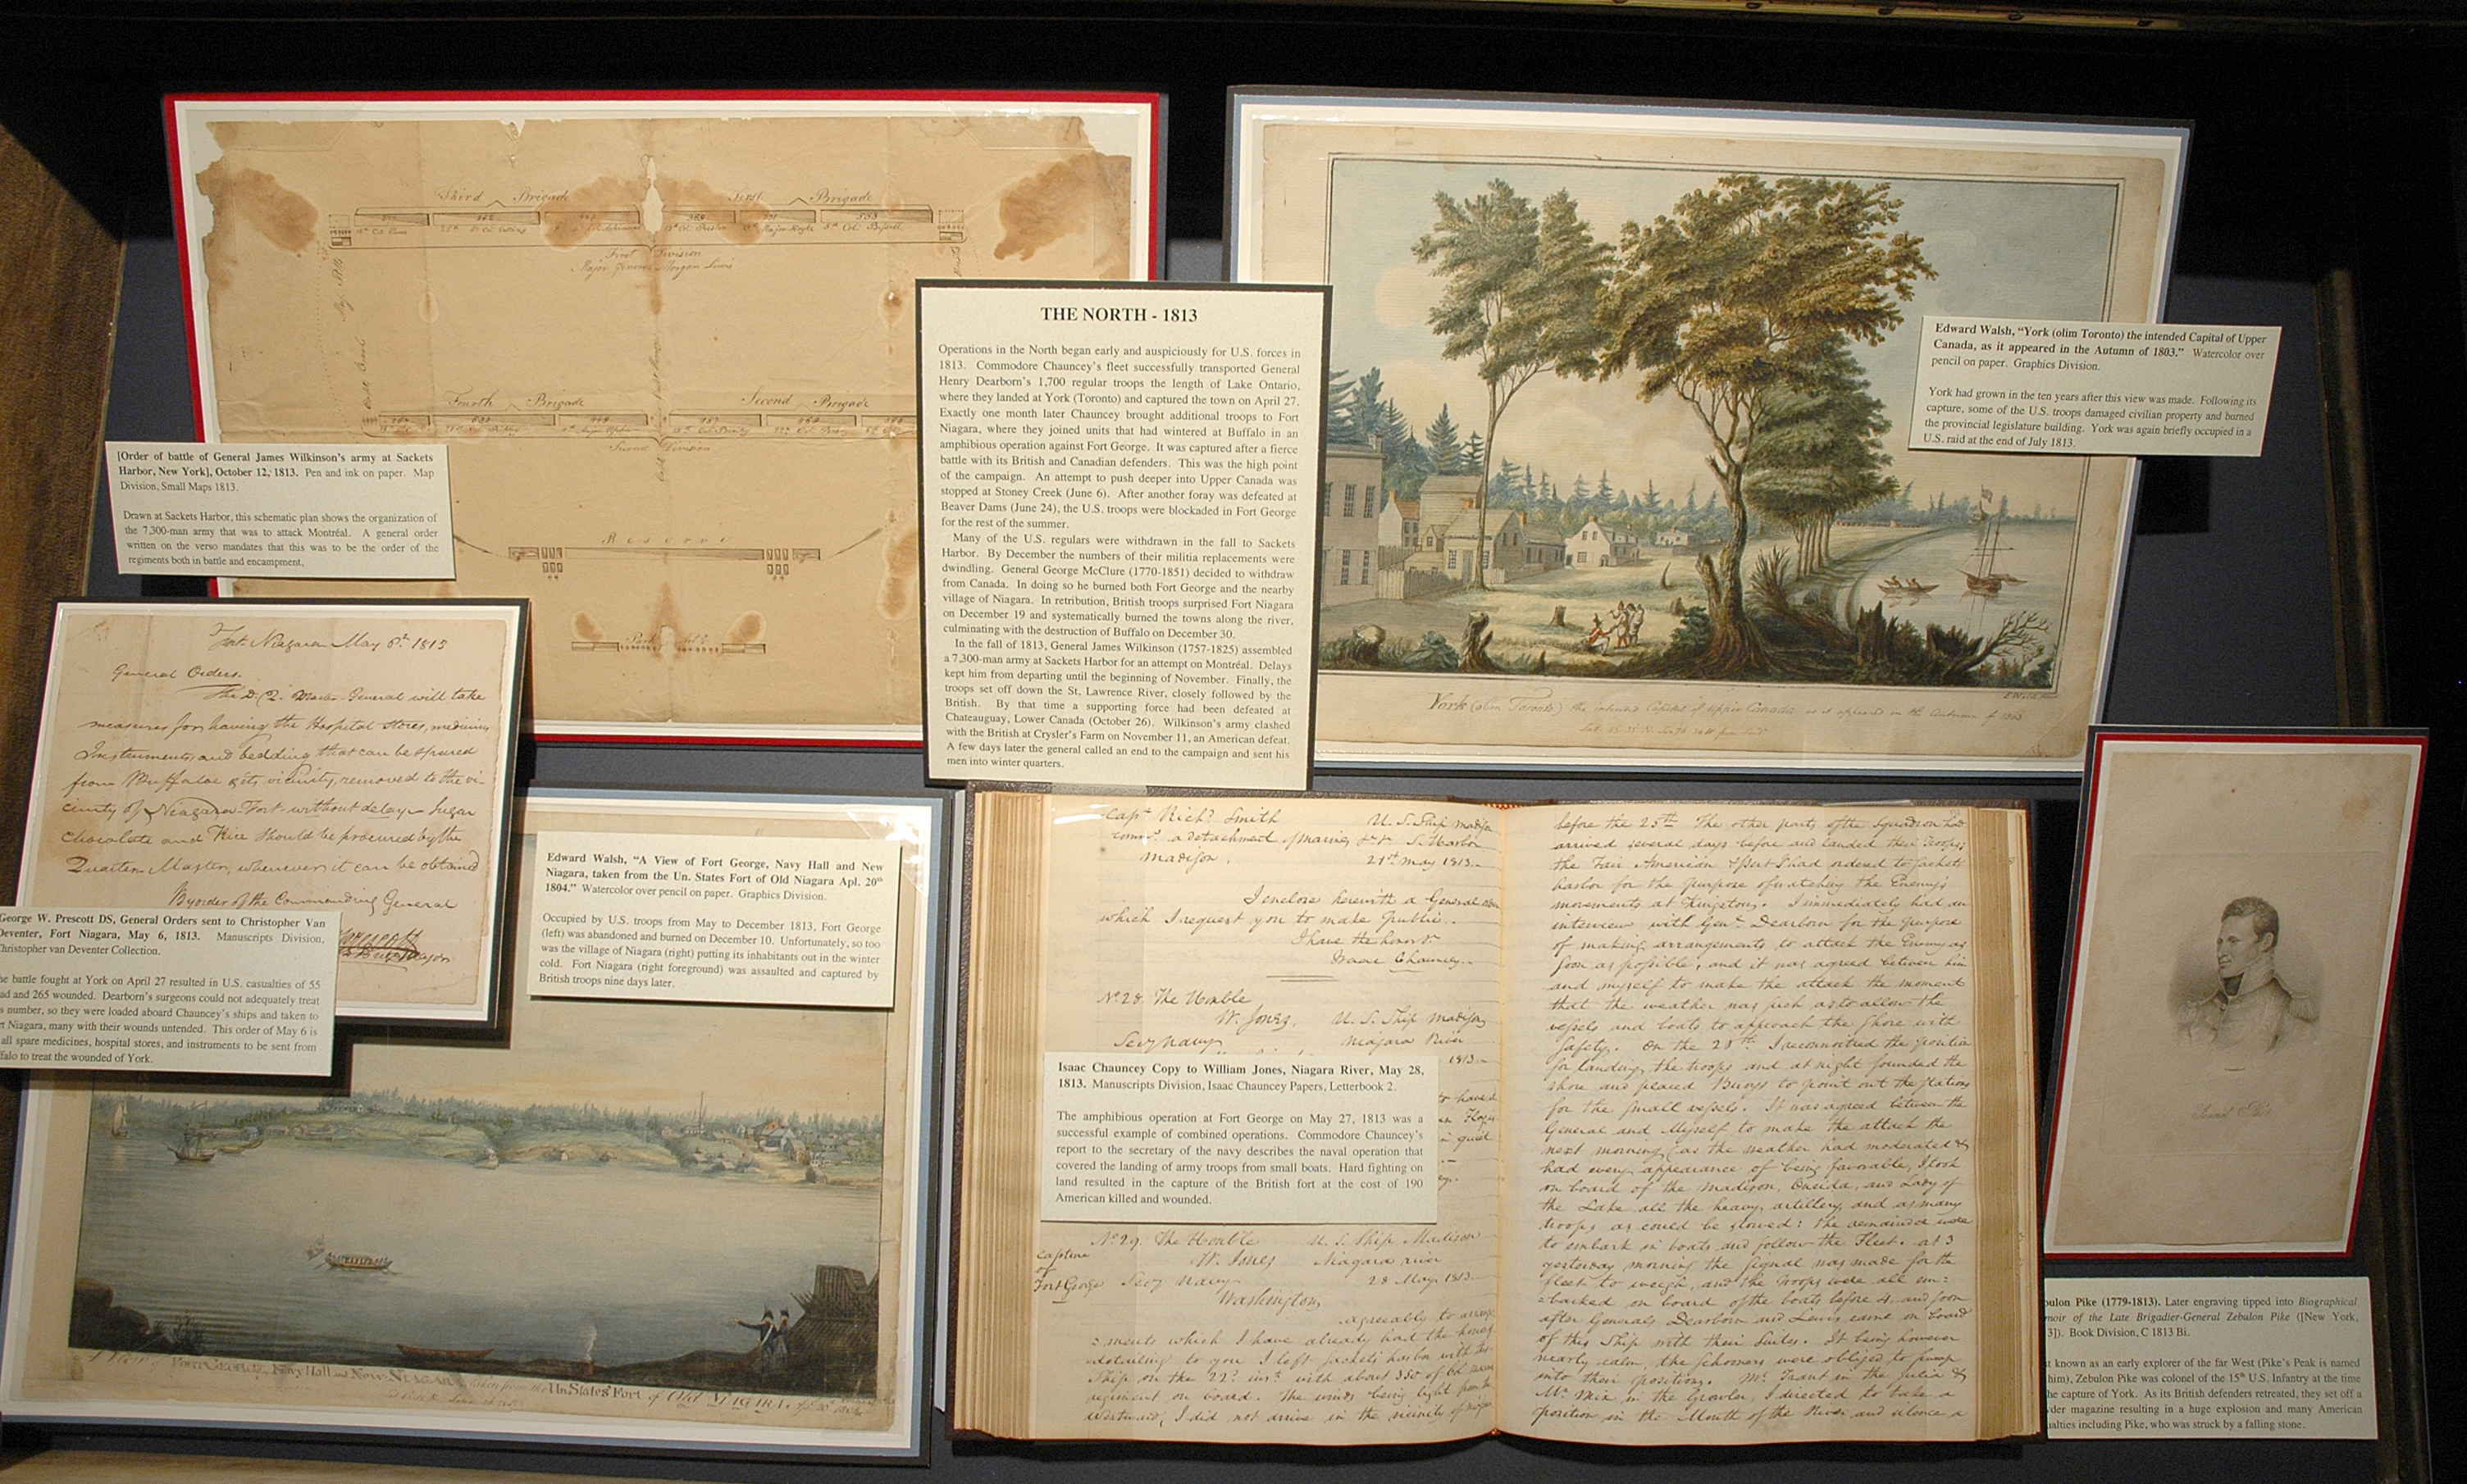 Third Brigade First Brigade
First Division
Major General Morgan Lewis
Fourth Brigade Second Brigade
Second Division
Reserve
Park
[Order of battle of General James Wilkinson's army at Sackets
Harbor, New York], October 12, 1813. Pen and ink on paper. Map
Division, Small Maps 1813.
Drawn at Sackets Harbor, this schematic plan shows the organization of
the 7,300-man army that was to attack Montréal. A general order
written on the verso mandates that this was to be the order of the
regiments both in battle and encampment.
THE NORTH - 1813
Operations in the North began early and auspiciously for U.S. forces in
1813. Commodore Chauncey's fleet successfully transported General
Henry Dearborn's 1,700 regular troops the length of Lake Ontario,
where they landed at York (Toronto) and captured the town on April 27.
Exactly one month later Chauncey brought additional troops to Fort
Niagara, where they joined units that had wintered at Buffalo in an
amphibious operation against Fort George. It was captured after a fierce
battle with its British and Canadian defenders. This was the high point
of the campaign. An attempt to push deeper into Upper Canada was
stopped at Stoney Creek (June 6). After another foray was defeated at
Beaver Dams (June 24), the U.S. troops were blockaded in Fort George
for the rest of the summer.
Many of the U.S. regulars were withdrawn in the fall to Sackets
Harbor. By December the numbers of their militia replacements were
dwindling. General George McClure (1770-1851) decided to withdraw
from Canada. In doing so he burned both Fort George and the nearby
village of Niagara. In retribution, British troops surprised Fort Niagara
on December 19 and systematically burned the towns along the river,
culminating with the destruction of Buffalo on December 30.
In the fall of 1813, General James Wilkinson (1757-1825) assembled
a 7,300-man army at Sackets Harbor for an attempt on Montréal. Delays
kept him from departing until the beginning of November. Finally, the
troops set off down the St. Lawrence River, closely followed by the
British. By that time a supporting force had been defeated at
Chateauguay, Lower Canada (October 26). Wilkinson's army clashed
with the British at Crysler's Farm on November 11, an American defeat.
A few days later the general called an end to the campaign and sent his
men into winter quarters.
Edward Walsh, "York (olim Toronto) the intended Capital of Upper
Canada, as it appeared in the Autumn of 1803." Watercolor over
pencil on paper. Graphics Division.
York had grown in the ten years after this view was made. Following its
capture, some of the U.S. troops damaged civilian property and burned
the provincial legislature building. York was again briefly occupied in a
U.S. raid at the end of July 1813.
York (olim Toronto) the intended Capital of Upper Canada as it appeared in the Autumn of 1803
Fort Niagara May 6th 1813
General Orders.
The D. Q. Master General will take
measures for having the Hospital stores, medicine,
Instruments and bedding that can be spared
from Buffaloe & its vicinity, removed to the vi-
cinity of Niagara Fort without delay - Sugar
Chocolate and Rice should be procured by the
Quarter Master, whenever it can be obtained
By order of the Commanding General
George W. Prescott DS, General Orders sent to Christopher Van
Deventer, Fort Niagara, May 6, 1813. Manuscripts Division,
Christopher van Deventer Collection.
he battle fought at York on April 27 resulted in U.S. casualties of 55
ad and 265 wounded. Dearborn's surgeons could not adequately treat
s number, so they were loaded aboard Chauncey's ships and taken to
rt Niagara, many with their wounds untended. This order of May 6 is
all spare medicines, hospital stores, and instruments to be sent from
ffalo to treat the wounded of York.
Edward Walsh, "A View of Fort George, Navy Hall and New
Niagara, taken from the Un. States Fort of Old Niagara Apl. 20th
1804." Watercolor over pencil on paper. Graphics Division.
Occupied by U.S. troops from May to December 1813, Fort George
(left) was abandoned and burned on December 10. Unfortunately, so too
was the village of Niagara (right) putting its inhabitants out in the winter
cold. Fort Niagara (right foreground) was assaulted and captured by
British troops nine days later.
A View of Fort George, Navy Hall and New Niagara taken from the Un. States Fort of Old Niagara.
Capt. Richd. Smith U. S. Ship Madison
a detachment of marines S. Harbor
Madison. 21st May 1813.
I enclose herewith a General order
which I request you to make public.
I have the honor &
Isaac Chauncey.
No. 28. The Honble
W. Jones, U. S. Ship Madison
Secy Navy Niagara River
1813.
Isaac Chauncey Copy to William Jones, Niagara River, May 28,
1813. Manuscripts Division, Isaac Chauncey Papers, Letterbook 2.
The amphibious operation at Fort George on May 27, 1813 was a
successful example of combined operations. Commodore Chauncey's
report to the secretary of the navy describes the naval operation that
covered the landing of army troops from small boats. Hard fighting on
land resulted in the capture of the British fort at the cost of 190
American killed and wounded.
No. 29. The Honble U. S. Ship Madison
Capture of Fort George
W. Jones Niagara river
Secy Navy 28 May 1813.
Washington
Agreeably to arrange
=ments which I have already had the honor
detailing to you I left Sackets harbor with this
Ship on the 22d inst. with about 350 of
regiment on board. The winds being light from the
Westward, I did not arrive in the vicinity of
before the 25th The other parts of the Squadron had
arrived several days before and landed their Troops;
the Fair American & Pert I had ordered to Sackets
harbor for the purpose of watching the Enemy's
movements at Kingston. I immediately had an
interview with Genl. Dearborn for the purpose
of making arrangements to attack the Enemy as
soon as possible, and it was agreed between him
and myself to make the attack the moment
that the weather was such as to allow the
vessels and boats to approach the Shore with
safety. On the 26th I reconnoitred the position
for landing the troops and at night sounded the
shore and placed Buoys to point out the stations
for the small vessels. It was agreed between the
General and Myself to make the attack the
next morning (as the weather had moderated &
had every appearance of being favorable, I took
on board of the Madison, Oneida, and Lady of
the Lake all the heavy artillery, and as many
troops as could be stowed: the remainder were
to embark in boats and follow the Fleet. at 3
yesterday morning the signal was made for the
fleet to weigh, and the troops were all em=
=barked on board of the boats before 4, and soon
after Generals Dearborn and Lewis came on board
of this Ship with their Suites. It being however
nearly calm, the schooners were obliged to sweep
into their positions. Mr. Trant in the Julia &
Mr. Mix in the Growler, I directed to take a
position in the Mouth of the River and silence a
bulon Pike (1779-1813). Later engraving tipped into Biographical
moir of the Late Brigadier-General Zebulon Pike ([New York,
3]). Book Division, C 1813 Bi.
t known as an early explorer of the far West (Pike's Peak is named
him), Zebulon Pike was colonel of the 15th U.S. Infantry at the time
he capture of York. As its British defenders retreated, they set off a
der magazine resulting in a huge explosion and many American
ualties including Pike, who was struck by a falling stone.